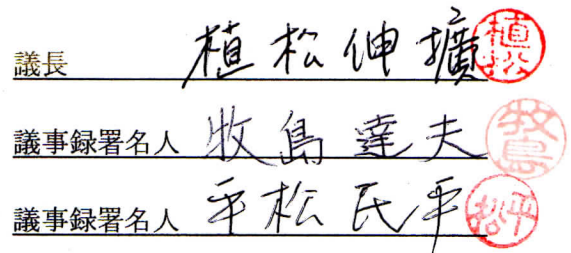 議長 植松伸擴 植松
議事録署名人 牧島達夫 牧島
議事録署名人 平松民平 平松